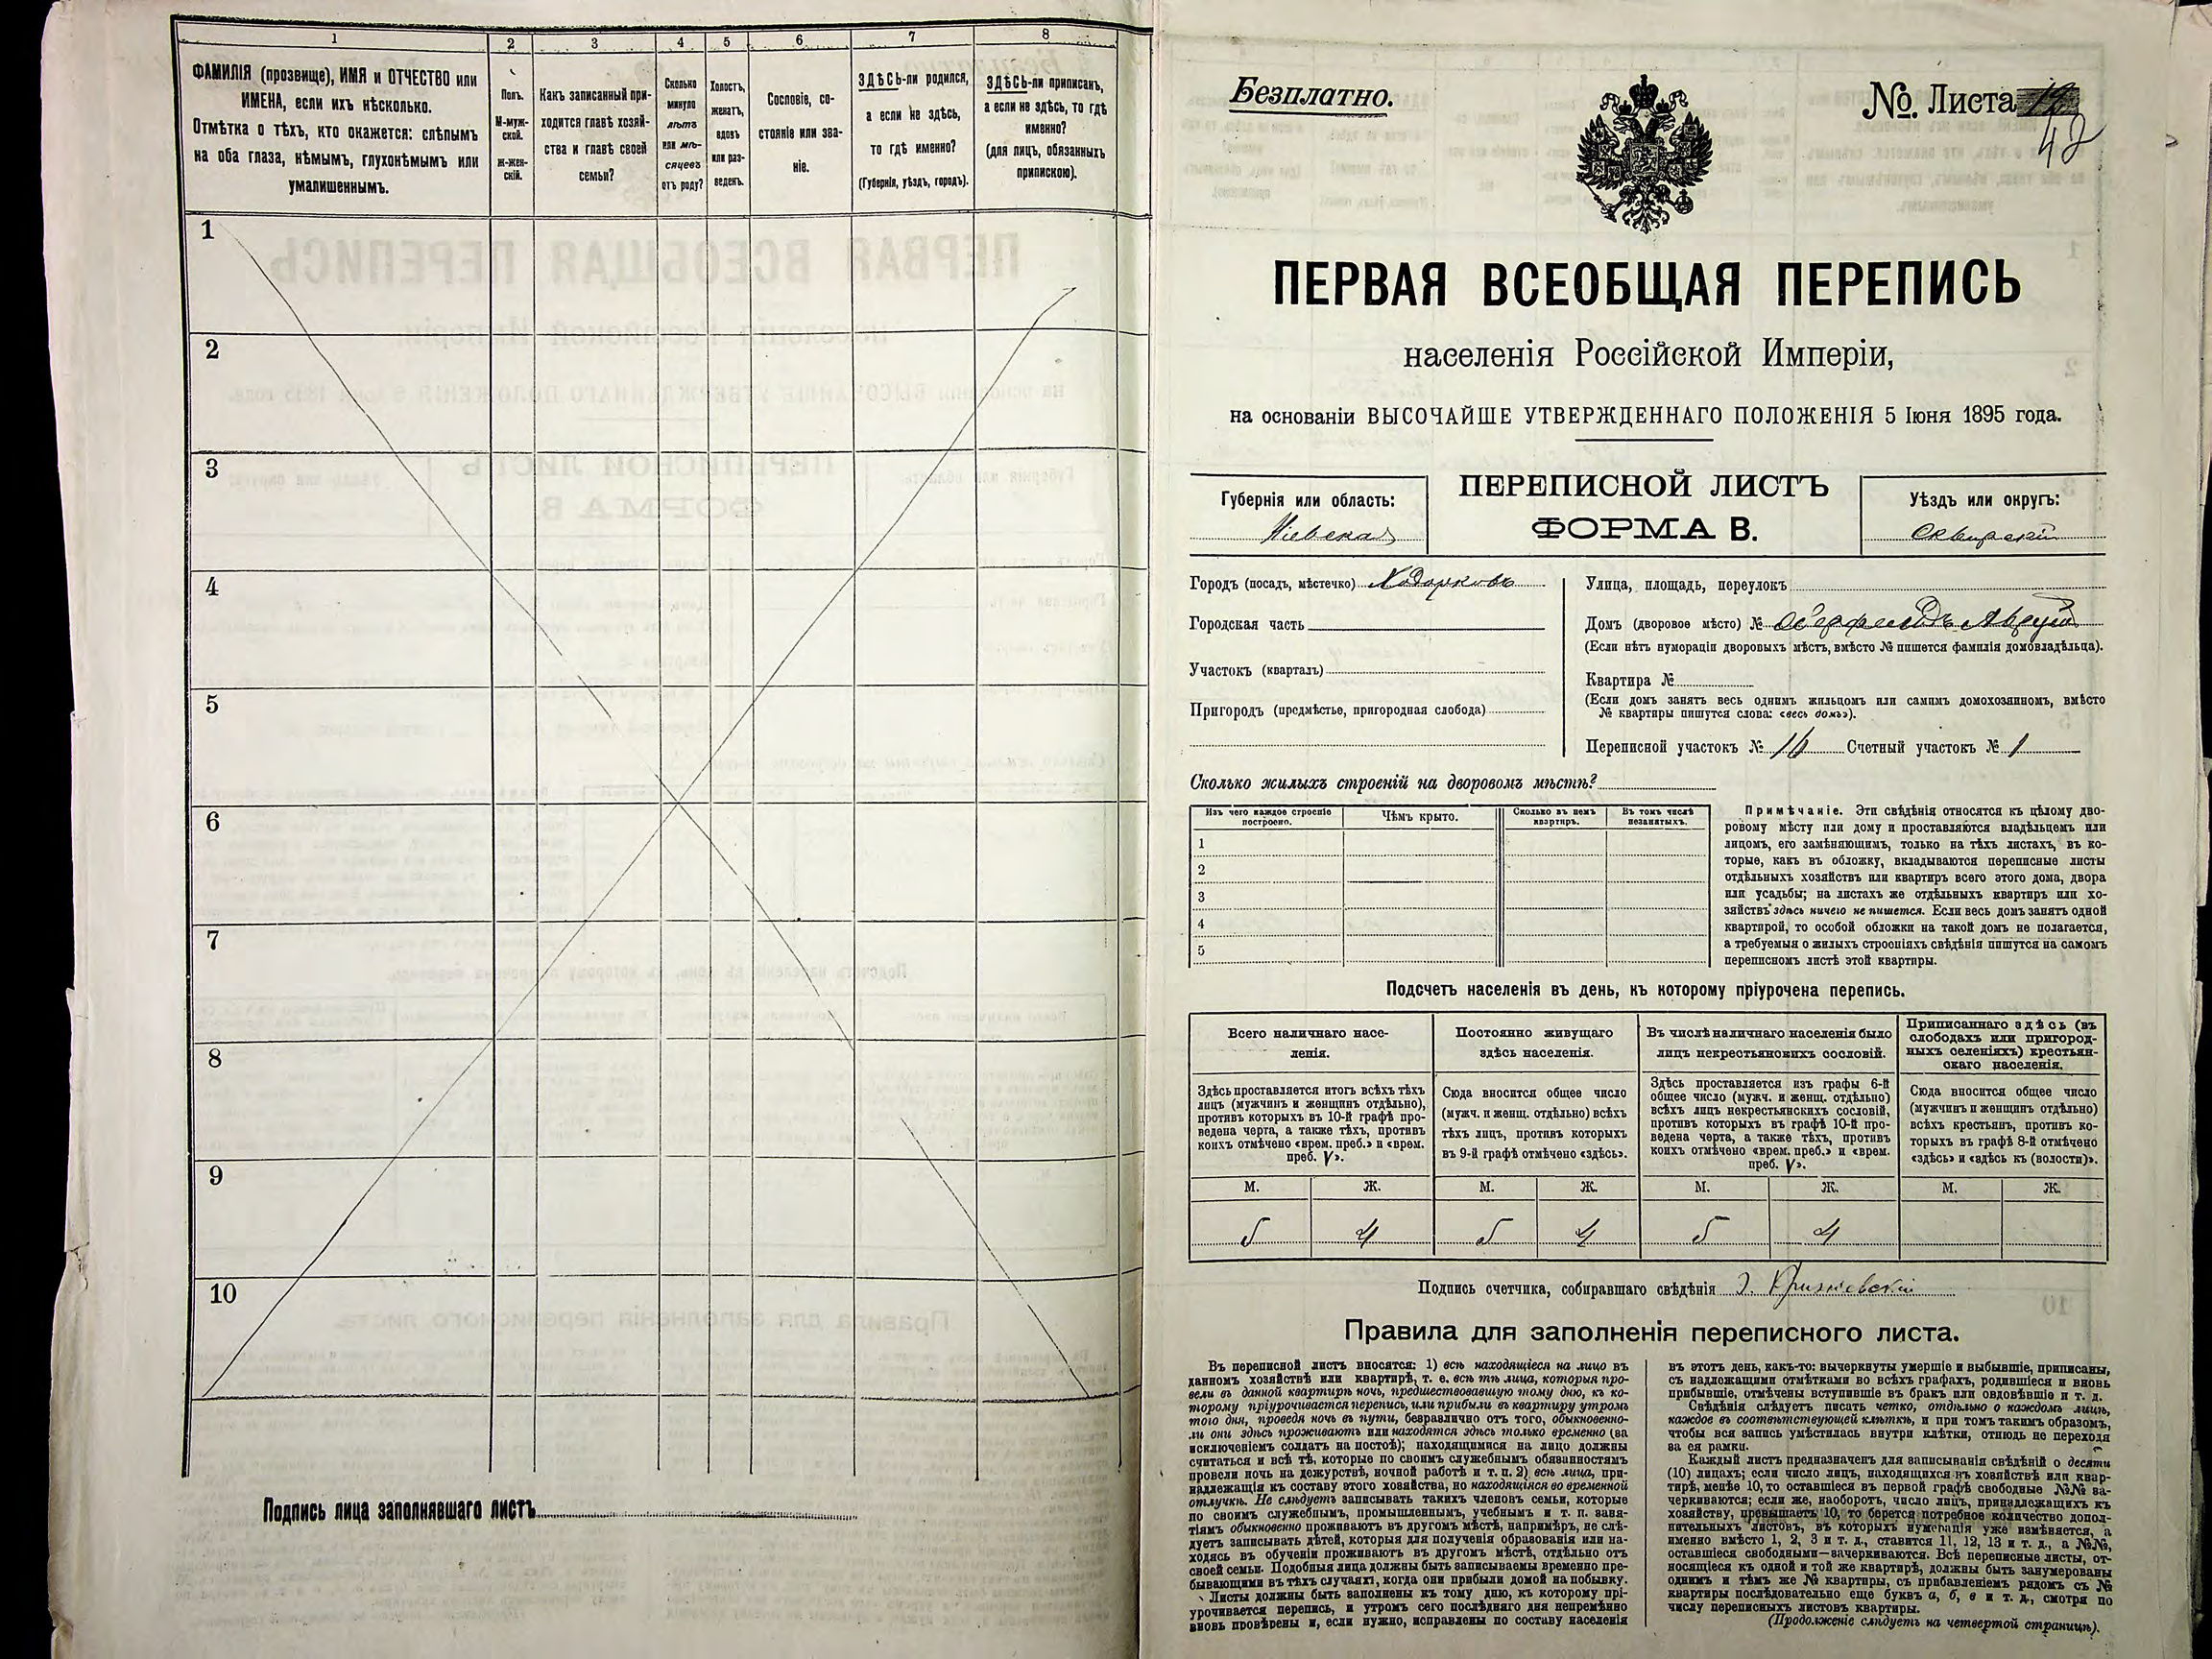 1 2 3 4 5 6 7 8
ФАМИЛІЯ (прозвище), ИМЯ и ОТЧЕСТВО или
ИМЕНА, если ихъ нѣсколько.
Отмѣтка о тѣхъ, кто окажется: слѣпымъ
на оба глаза, нѣмымъ, глухонѣмымъ или
умалишеннымъ.
Полъ.
М-муж-
ской.
Ж-жен-
скій.
Какъ записанный при-
ходится главѣ хозяй-
ства и главѣ своей
семьи?
Сколько
минуло
лѣтъ
или мѣ-
сяцевъ
отъ роду?
Холостъ,
женатъ,
вдовъ
или раз-
веденъ.
Сословіе, со-
стояніе или зва-
ніе.
ЗДѢСЬ-ли родился,
а если не здѣсь,
то гдѣ именно?
(Губернія, уѣздъ, городъ).
ЗДѢСЬ-ли приписанъ,
а если не здѣсь, то гдѣ
именно?
(для лицъ, обязанныхъ
припискою).
1
2
3
4
5
6
7
8
9
10
Подпись лица заполнявшаго листъ
Безплатно.
№ Листа
42
ПЕРВАЯ ВСЕОБЩАЯ ПЕРЕПИСЬ
населенія Россійской Имперіи,
на основаніи ВЫСОЧАЙШЕ УТВЕРЖДЕННАГО ПОЛОЖЕНІЯ 5 Іюня 1895 года.
Губернія или область:
Кіевская
ПЕРЕПИСНОЙ ЛИСТЪ
ФОРМА В.
Уѣздъ или округъ:
Сквирскій
Городъ (посадъ, мѣстечко) Ходорковъ
Городская часть
Участокъ (кварталъ)
Пригородъ (предмѣстье, пригородная слобода)
Улица, площадь, переулокъ
Домъ (дворовое мѣсто) №
(Если нѣтъ нумераціи дворовыхъ мѣстъ, вмѣсто № пишется фамилія домовладѣльца).
Квартира №
(Если домъ занятъ весь однимъ жильцомъ или самимъ домохозяиномъ, вмѣсто
№ квартиры пишутся слова: «весь домъ»).
Переписной участокъ № 16 Счетный участокъ № 1
Сколько жилыхъ строеній на дворовомъ мѣстѣ?
Изъ чего каждое строеніе
построено.
Чѣмъ крыто.
Сколько въ немъ
квартиръ.
Въ томъ числѣ
незанятыхъ.
1
2
3
4
5
Примѣчаніе. Эти свѣдѣнія относятся къ цѣлому дво-
ровому мѣсту или дому и проставляются владѣльцемъ или
лицомъ, его замѣняющимъ, только на тѣхъ листахъ, въ ко-
торые, какъ въ обложку, вкладываются переписные листы
отдѣльныхъ хозяйствъ или квартиръ всего этого дома, двора
или усадьбы; на листахъ же отдѣльныхъ квартиръ или хо-
зяйствъ здѣсь ничего не пишется. Если весь домъ занятъ одной
квартирой, то особой обложки на такой домъ не полагается,
а требуемыя о жилыхъ строеніяхъ свѣдѣнія пишутся на самомъ
переписномъ листѣ этой квартиры.
Подсчетъ населенія въ день, къ которому пріурочена перепись.
Всего наличнаго насе-
ленія.
Постоянно живущаго
здѣсь населенія.
Въ числѣ наличнаго населенія было
лицъ некрестьянскихъ сословій.
Приписаннаго здѣсь (въ
слободахъ или пригород-
ныхъ селеніяхъ) крестьян-
скаго населенія.
Здѣсь проставляется итогъ всѣхъ тѣхъ
лицъ (мужчинъ и женщинъ отдѣльно),
противъ которыхъ въ 10-й графѣ про-
ведена черта, а также тѣхъ, противъ
коихъ отмѣчено «врем. преб.» и «врем.
преб. V».
Сюда вносится общее число
(мужч. и женщ. отдѣльно) всѣхъ
тѣхъ лицъ, противъ которыхъ
въ 9-й графѣ отмѣчено «здѣсь».
Здѣсь проставляется изъ графы 6-й
общее число (мужч. и женщ. отдѣльно)
всѣхъ лицъ некрестьянскихъ сословій,
противъ которыхъ въ графѣ 10-й про-
ведена черта, а также тѣхъ, противъ
коихъ отмѣчено «врем. преб.» и «врем.
преб. V».
Сюда вносится общее число
(мужчинъ и женщинъ отдѣльно)
всѣхъ крестьянъ, противъ ко-
торыхъ въ графѣ 8-й отмѣчено
«здѣсь» и «здѣсь къ (волости)».
М. Ж. М. Ж. М. Ж. М. Ж.
5 4 5 4 5 4
Подпись счетчика, собиравшаго свѣдѣнія
Правила для заполненія переписного листа.
Въ переписной листъ вносятся: 1) всѣ находящіеся на лицо въ
данномъ хозяйствѣ или квартирѣ, т. е. всѣ тѣ лица, которыя про-
вели въ данной квартирѣ ночь, предшествовавшую тому дню, къ ко-
торому пріурочивается перепись, или прибыли въ квартиру утромъ
того дня, проведя ночь въ пути, безразлично отъ того, обыкновенно-
ли они здѣсь проживаютъ или находятся здѣсь только временно (за
исключеніемъ солдатъ на постоѣ); находящимися на лицо должны
считаться и всѣ тѣ, которые по своимъ служебнымъ обязанностямъ
провели ночь на дежурствѣ, ночной работѣ и т. п. 2) всѣ лица, при-
надлежащія къ составу этого хозяйства, но находящіяся во временной
отлучкѣ. Не слѣдуетъ записывать такихъ членовъ семьи, которые
по своимъ служебнымъ, промышленнымъ, учебнымъ и т. п. заня-
тіямъ обыкновенно проживаютъ въ другомъ мѣстѣ, напримѣръ, не слѣ-
дуетъ записывать дѣтей, которыя для полученія образованія или на-
ходясь въ обученіи проживаютъ въ другомъ мѣстѣ, отдѣльно отъ
своей семьи. Подобныя лица должны быть записываемы временно пре-
бывающими въ тѣхъ случаяхъ, когда они прибыли домой на побывку.
Листы должны быть заполнены къ тому дню, къ которому прі-
урочивается перепись, и утромъ сего послѣдняго дня непремѣнно
вновь провѣрены и, если нужно, исправлены по составу населенія
въ этотъ день, какъ-то: вычеркнуты умершіе и выбывшіе, приписаны,
съ надлежащими отмѣтками во всѣхъ графахъ, родившіеся и вновь
прибывшіе, отмѣчены вступившіе въ бракъ или овдовѣвшіе и т. д.
Свѣдѣнія слѣдуетъ писать четко, отдѣльно о каждомъ лицѣ,
каждое въ соотвѣтствующей клѣткѣ, и при томъ такимъ образомъ,
чтобы вся запись умѣстилась внутри клѣтки, отнюдь не переходя
за ея рамки.
Каждый листъ предназначенъ для записыванія свѣдѣній о десяти
(10) лицахъ; если число лицъ, находящихся въ хозяйствѣ или квар-
тирѣ, менѣе 10, то оставшіеся въ первой графѣ свободные №№ за-
черкиваются; если же, наоборотъ, число лицъ, принадлежащихъ къ
хозяйству, превышаетъ 10, то берется потребное количество допол-
нительныхъ листовъ, въ которыхъ нумерація уже измѣняется, а
именно вмѣсто 1, 2, 3 и т. д., ставится 11, 12, 13 и т. д., а №№,
оставшіеся свободными—зачеркиваются. Всѣ переписные листы, от-
носящіеся къ одной и той же квартирѣ, должны быть занумерованы
однимъ и тѣмъ же № квартиры, съ прибавленіемъ рядомъ съ №
квартиры послѣдовательно еще буквъ а, б, в и т. д., смотря по
числу переписныхъ листовъ квартиры.
(Продолженіе слѣдуетъ на четвертой страницѣ).